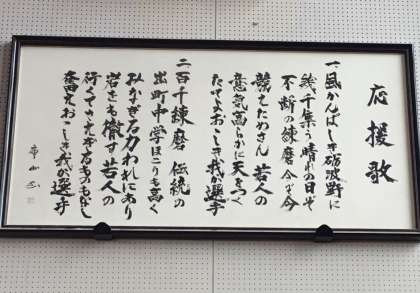 応援歌
一、風かんばしき砺波野に
幾千集う晴れの日ぞ
不断の練磨今ぞ今
競えためさん若人の
意気高らかに天をつく
たてよおゝしき我が選手
二、百千練磨伝統の
出町中学ほこりも高く
みなぎる力われにあり
岩をも徹す若人の
行くてさえぎるものもなし
奮えおゝしき我が選手